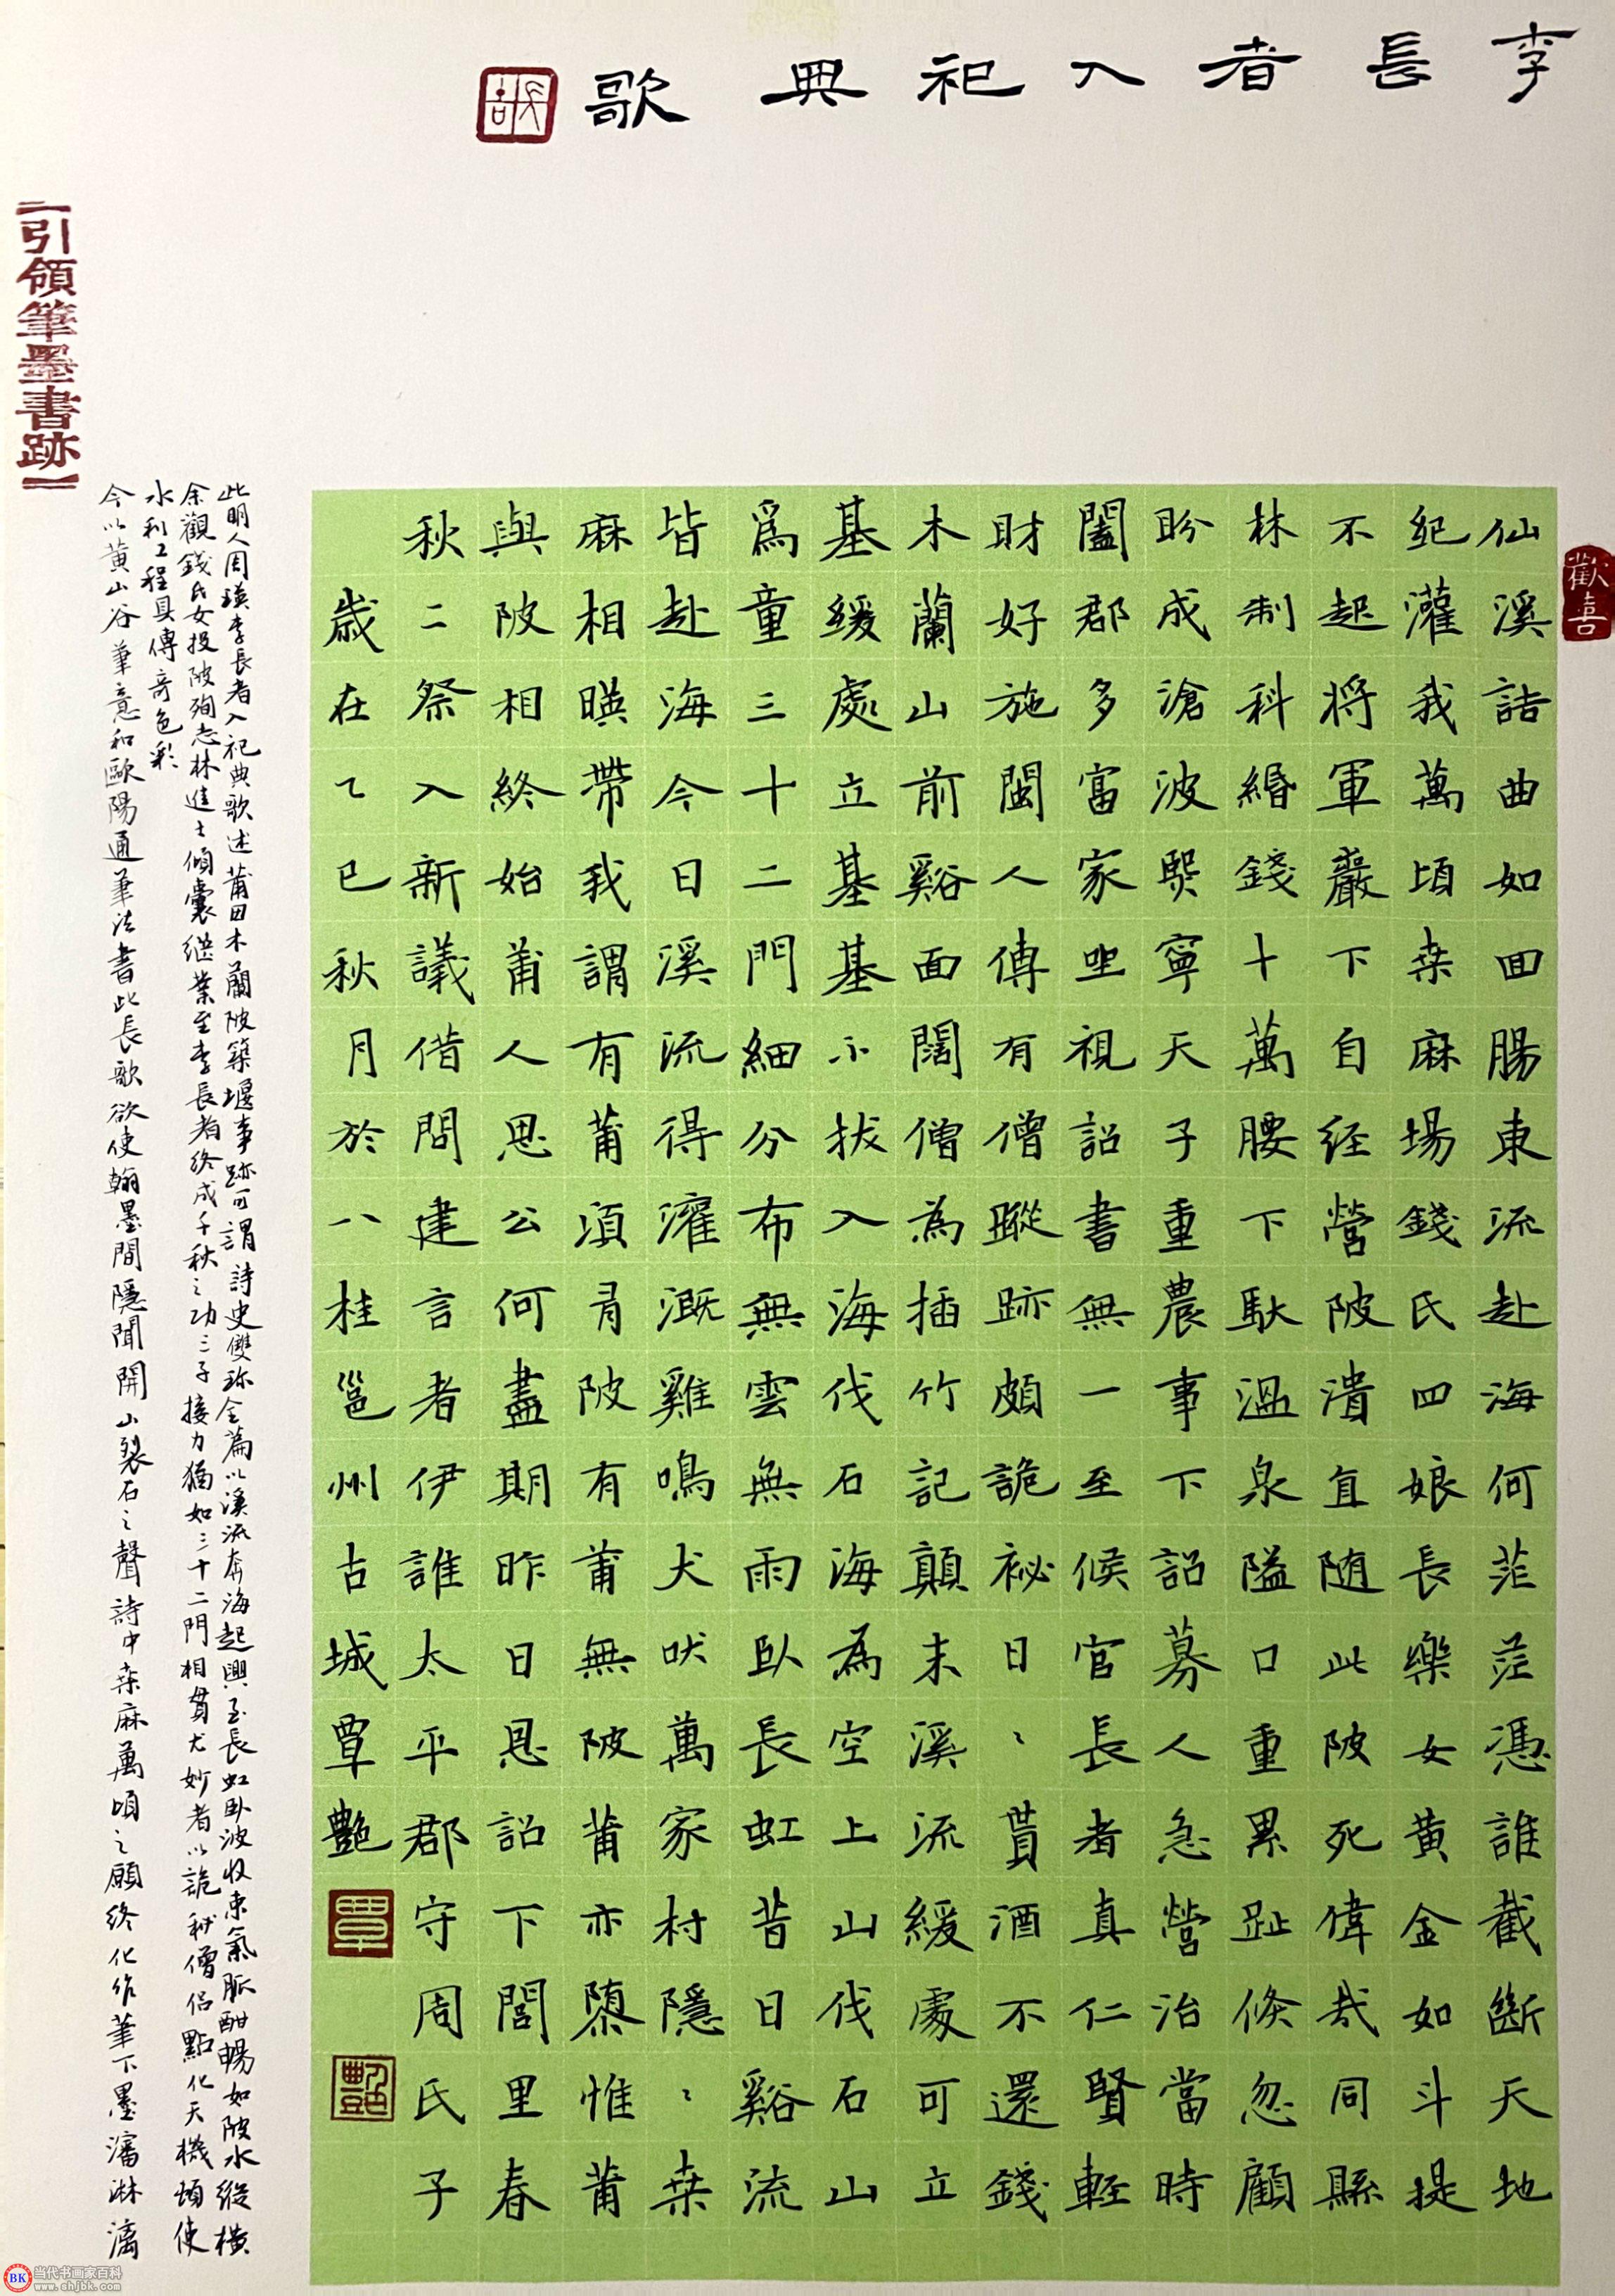 李長者入祀典歌
歡喜
仙溪詰曲如回腸東流赴海何茫茫憑誰截斷天地
紀灌我萬頃桑麻場錢氏四娘長樂女黃金如斗提
不起將軍巖下自經營陂潰直随此陂死偉哉同縣
林制科緡錢十萬腰下馱溫泉隘口重累趾倏忽顧
盼成滄波熙寧天子重農事下詔募人急營治當時
闔郡多富家坐視詔書無一至候官長者真仁賢輕
財好施閩人傳有僧蹤跡頗詭祕日丶貰酒不還錢
木蘭山前谿面闊僧為插竹記顛末溪流緩處可立
基緩處立基基不拔入海伐石海為空上山伐石山
爲童三十二門細分布無雲無雨臥長虹昔日谿流
皆赴海今日溪流得灌溉雞鳴犬吠萬家村隱〻桑
麻相暎帶我謂有莆須有陂有莆無陂莆亦隳惟莆
與陂相終始莆人思公何盡期昨日恩詔下閭里春
秋二祭入新議借問建言者伊誰太平郡守周氏子
歲在乙巳秋月於八桂邕州古城覃艷
覃
艷
此明人周瑛李長者入祀典歌述莆田木蘭陂築堰事跡可謂詩史雙珎全篇以溪流奔海起興至長虹卧波收束氣脈酣暢如陂水縱橫
余觀錢氏女投陂殉志林進士傾囊継業至李長者終成千秋之功三子接力猶如三十二門相貫尤妙者以詭秘僧侶點化天機頓使
水利工程具傳奇色彩
今以黃山谷筆意和歐陽通筆法書此長歌欲使翰墨間隱聞開山裂石之聲詩中桑麻萬頃之願終化作筆下墨瀋淋漓
引領筆墨書跡
當代书画家百科
www.shjbk.com
BK